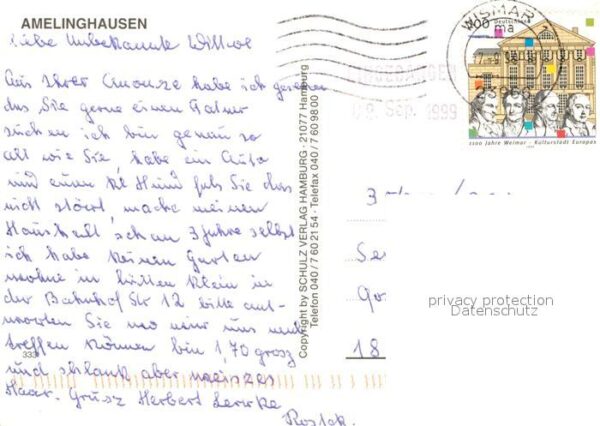 AMELINGHAUSEN
Liebe Unbekannte Witwe
Aus Ihrer Anonze habe ich gesehen
das Sie gerne einen Partner
suchen ich bin genau so
alt wie Sie, habe ein Auto
und einen kl Hund falls Sie das
nicht stört, mache meinen
Haushalt schon 3 Jahre selbst
ich habe keinen Garten
wohne in Lütten Klein in
der Bahnhof Str 12 bitte ant-
worten Sie wo wir uns
treffen können bin 1,70 grosz
und schlank aber weiszes
Haar. Grusz Herbert
Rostock
333
Copyright by SCHULZ VERLAG HAMBURG · 21077 Hamburg
Telefon 040/7 60 21 54 · Telefax 040/7 60 98 00
WISMAR
Sep. 1999
100 Deutschland
1100 Jahre Weimar · Kulturstadt Europas
18
privacy protection
Datenschutz